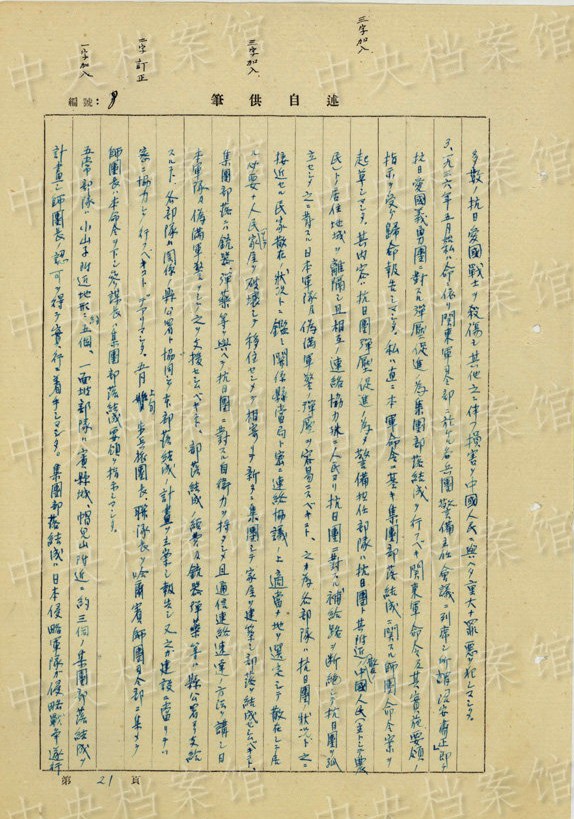 三字加入
三字加入
二字訂正
一字加入
述自供筆
編號：8
多数ノ抗日愛國戦士ヲ殺傷シ其他之ニ伴フ損害ヲ中國人民ニ與ヘタ重大ナ罪悪ヲ犯シマシタ。
3、一九三六年五月始私ハ命ニ依リ関東軍司令部ニ於ケル各兵團警備主任会議ニ列席シ所謂「治安粛正」即チ
抗日愛國義勇團ニ對スル弾圧促進ノ為集團部落結成ヲ行フベキ関東軍命令及其実施要領ノ
指示ヲ受ケ帰来報告シマシタ。私ハ直ニ本軍命令ニ基キ集團部落結成ニ関スル師團ノ命令案ヲ
起草シマシタ。其内容ハ抗日團弾圧促進ノ為メ警備担任部隊ハ抗日團ト其附近ノ中國人民
民ト居住地域ヲ離隔シ且相互ノ連絡協力殊ニ人民ヨリ抗日團ニ對スル補給路ヲ断絶シ抗日團ヲ孤
立セシメ之ニ對スル日本軍隊及偽満軍警ノ弾圧ヲ容易ナラシムベキコト、之ガ為各部隊ハ抗日團ノ状況ト之ニ
接近セル民家散在ノ状況トニ鑑ミ関係縣當局ト密ニ連絡協議ノ上適當ノ地ヲ選定シテ散在シテ居
ル必要ノ人民家屋ヲ破壊シテ移住セシメ
集團部落ニハ銃器弾薬等ヲ與ヘテ抗日團ニ對スル自衛力ヲ持タシメ且通信連絡速達ノ方法ヲ講シ日
本軍隊及偽満軍警ヲシテ之ヲ支援セシムベキコト、部落結成ノ経費及銃器弾薬等ハ縣公署ヨリ支給
スルコト、各部隊ハ関係縣公署ト協同シテ本部落結成ノ計画ヲ立案シ報告シ又之ガ建設ニ當リテハ
密ニ協力シテ行フベキコト デアリマシタ。五月上旬歩兵旅團長、聯隊長ヲ哈爾賓師團司令部ニ集メテ
師團長ハ本命令ヲ下シ参謀長ハ集團部落結成要領ヲ指示シマシタ。
五常部隊ハ小山子附近地形ニ約五個、一面坡部隊ハ賓縣城、帽兒山附近ニ約三個ノ集團部落結成ヲ
計畫シ師團長ノ認可ヲ得テ實行ニ着手シマシタ。集團部落結成ハ日本侵略軍隊ガ侵略戦争遂行
第 21 頁
中央档案馆